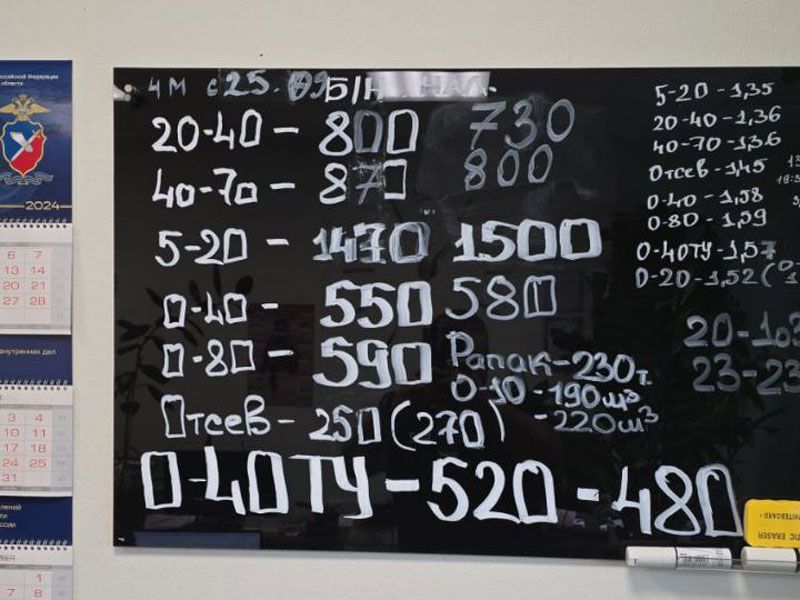 оссийской Федерации
области
2024
6 7
13 14
20 21
27 28
внутренних дел
3 4
10 11
17 18
24 25
31
1
7 8
4М с 25.09 Б/Н НАЛ.
20-40 - 800 730
40-70 - 870 800
5-20 - 1470 1500
0-40 - 550 580
0-80 - 590
Рапак-230т.
0-10-190м³
-220м³
Отсев - 250 (270)
0-40ТУ - 520 - 480
5-20-1,35
20-40-1,36
40-70-1,36
Отсев-1,45
0-40-1,58
0-80-1,59
0-40ТУ-1,57
0-20-1,52(0-
20-103
23-23
ERASER
WHITEBOARD